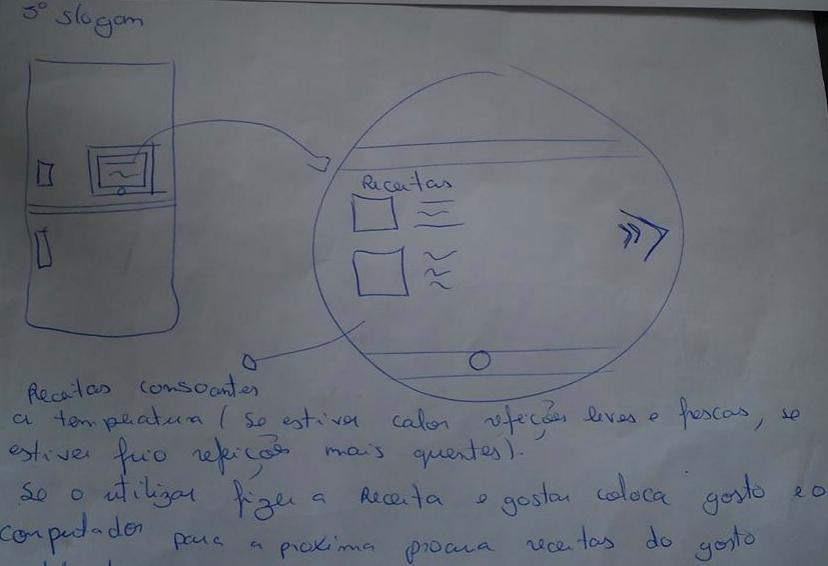 3º Slogam
Receitas
Receitas consoantes
a temperatura ( Se estiver calor refeições leves e frescas, se
estiver frio refeições mais quentes).
Se o utilizar fizer a Receita e gostar coloca gosto e o
computador para a proxima procura receitas do gosto